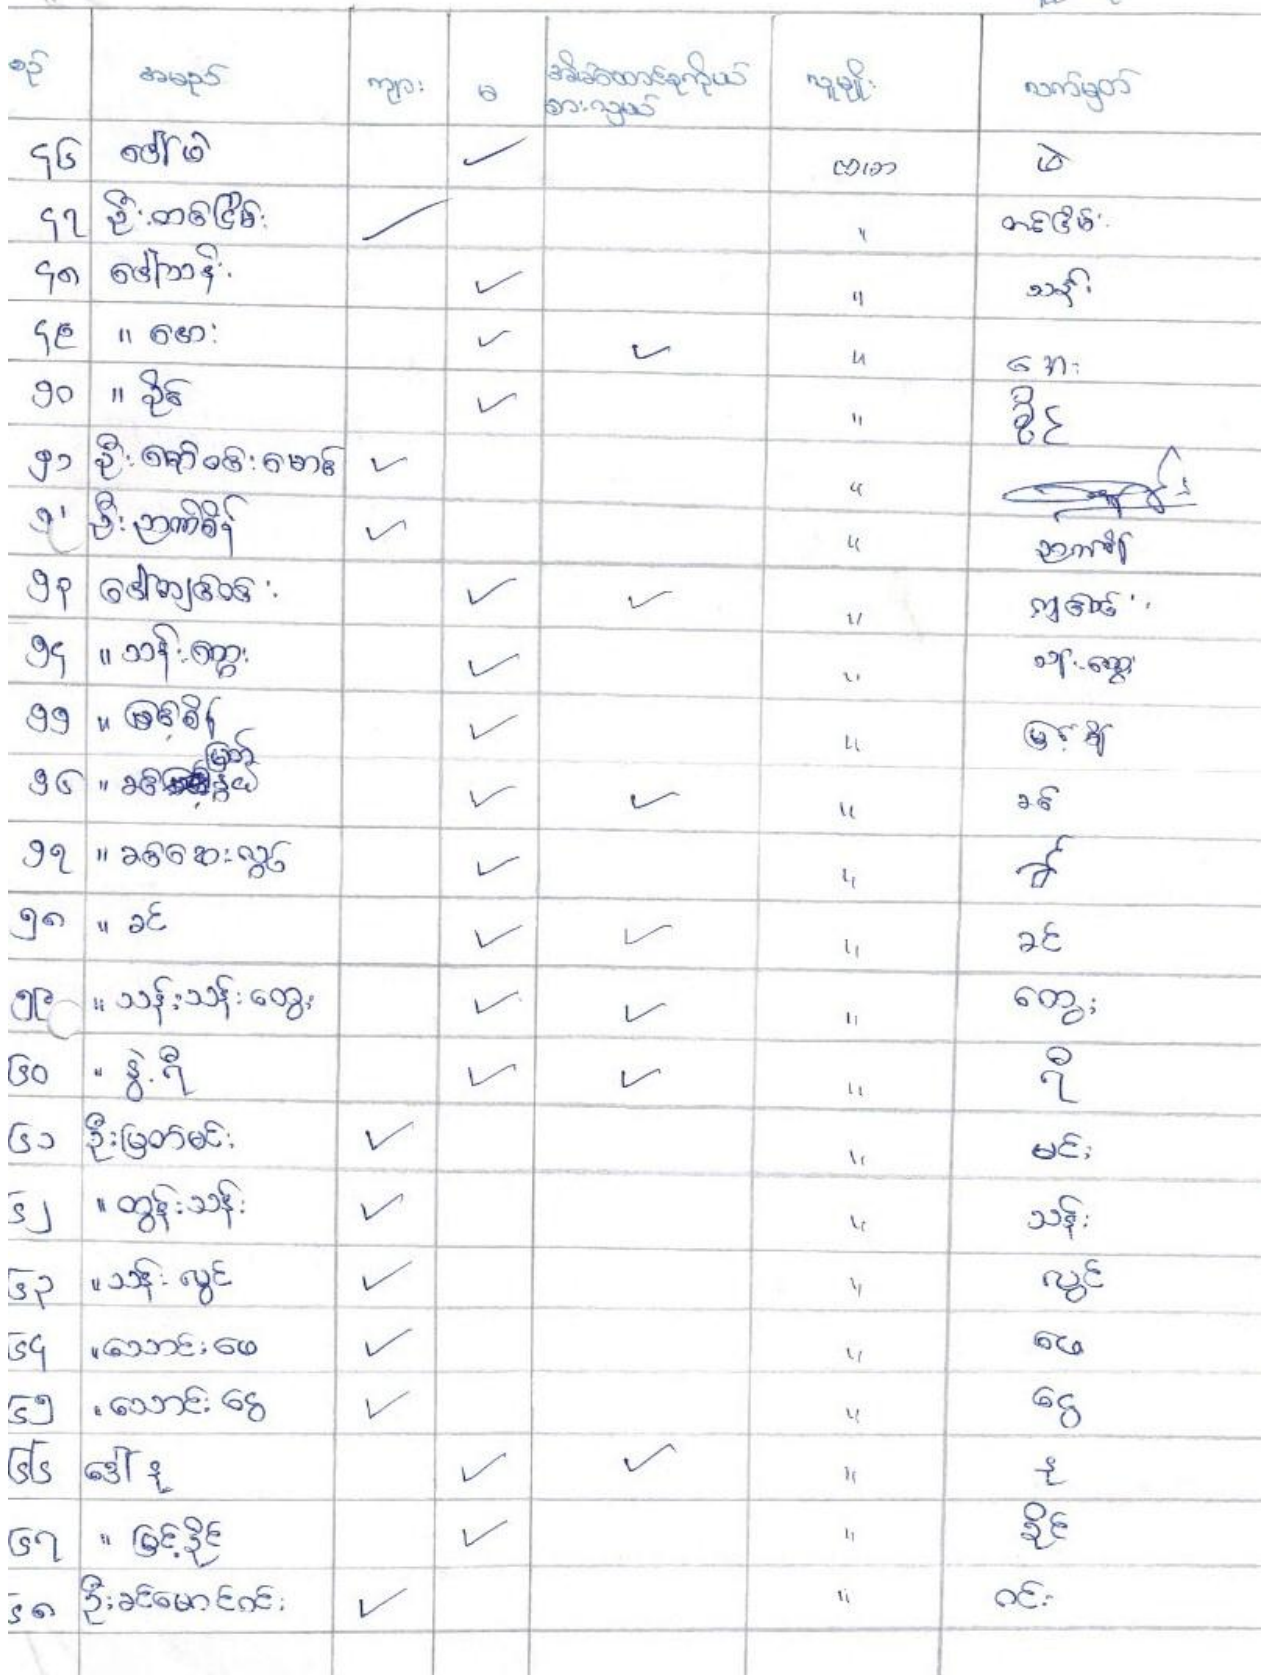 စဉ် အမည် ကျား မ အိမ်ထောင်စုကိုယ်စားလှယ် လူမျိုး လက်မှတ်
၄၆ ဒေါ်ဖဲ ✓ ဗမာ ဖဲ
၄၇ ဦးတင်ငြိမ်း ✓ " တင်ငြိမ်း
၄၈ ဒေါ်သန်း ✓ " သန်း
၄၉ " အေး ✓ ✓ " အေး
၅၀ " ခိုင် ✓ " ခိုင်
၅၁ ဦးကျော်ဝင်းမောင် ✓ "
၅၂ ဦးဉာဏ်စိန် ✓ " ဉာဏ်စိန်
၅၃ ဒေါ်ကျင်ဝင်း ✓ ✓ " ကျင်ဝင်း
၅၄ " သန်းကွေး ✓ " သန်းကွေး
၅၅ " မြင့်စိန် ✓ " မြင့်စိန်
၅၆ " ခင်မြတ်နွယ် ✓ ✓ " ခင်
၅၇ " ခင်အေးလွင် ✓ "
၅၈ " ခင် ✓ ✓ " ခင်
၅၉ " သန်းသန်းထွေး ✓ ✓ " ထွေး
၆၀ " နွဲ့ရီ ✓ ✓ " ရီ
၆၁ ဦးမြတ်မင်း ✓ " မင်း
၆၂ " ထွန်းသန်း ✓ " သန်း
၆၃ " သန်းလွင် ✓ " လွင်
၆၄ " သောင်းဖေ ✓ " ဖေ
၆၅ " သောင်းငွေ ✓ " ငွေ
၆၆ ဒေါ်နု ✓ ✓ " နု
၆၇ " မြင့်ခိုင် ✓ " ခိုင်
၆၈ ဦးခင်မောင်ဝင်း ✓ " ဝင်း